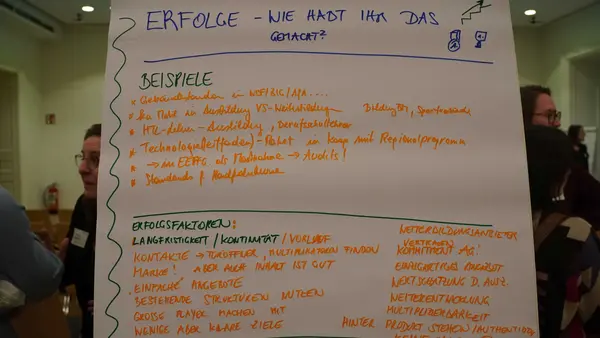 ERFOLGE - WIE HABT IHR DAS
GEMACHT?
BEISPIELE
in WIFI/BIC/APA....
in Ausbildung VS-Weiterbildung
HTL-Lehrer-Ausbildung, Berufsschullehrer
Technologie(leitfaden)-Paket in Koop mit Regionalprogramm
→ in EEFFG als Maßnahme → Audits!
Standards f
ERFOLGSFAKTOREN:
LANGFRISTIGKEIT / KONTINUITÄT / VORLAUF
KONTAKTE → TÜRÖFFNER, MULTIPLIKATOREN FINDEN
MARKE! ABER AUCH INHALT IST GUT
EINFACHE ANGEBOTE
BESTEHENDE STRUKTUREN NUTZEN
GROSSE PLAYER MACHEN MIT
WENIGE ABER KLARE ZIELE
WEITERBILDUNGSANBIETER
VERTRAUEN
KOMMITMENT AG!
EINZIGARTIGES ANGEBOT
WERTSCHÄTZUNG D. AUSZ.
WEITERENTWICKLUNG
MULTIPLIZIERBARKEIT
HINTER PRODUKT STEHEN/AUTHENTIZ